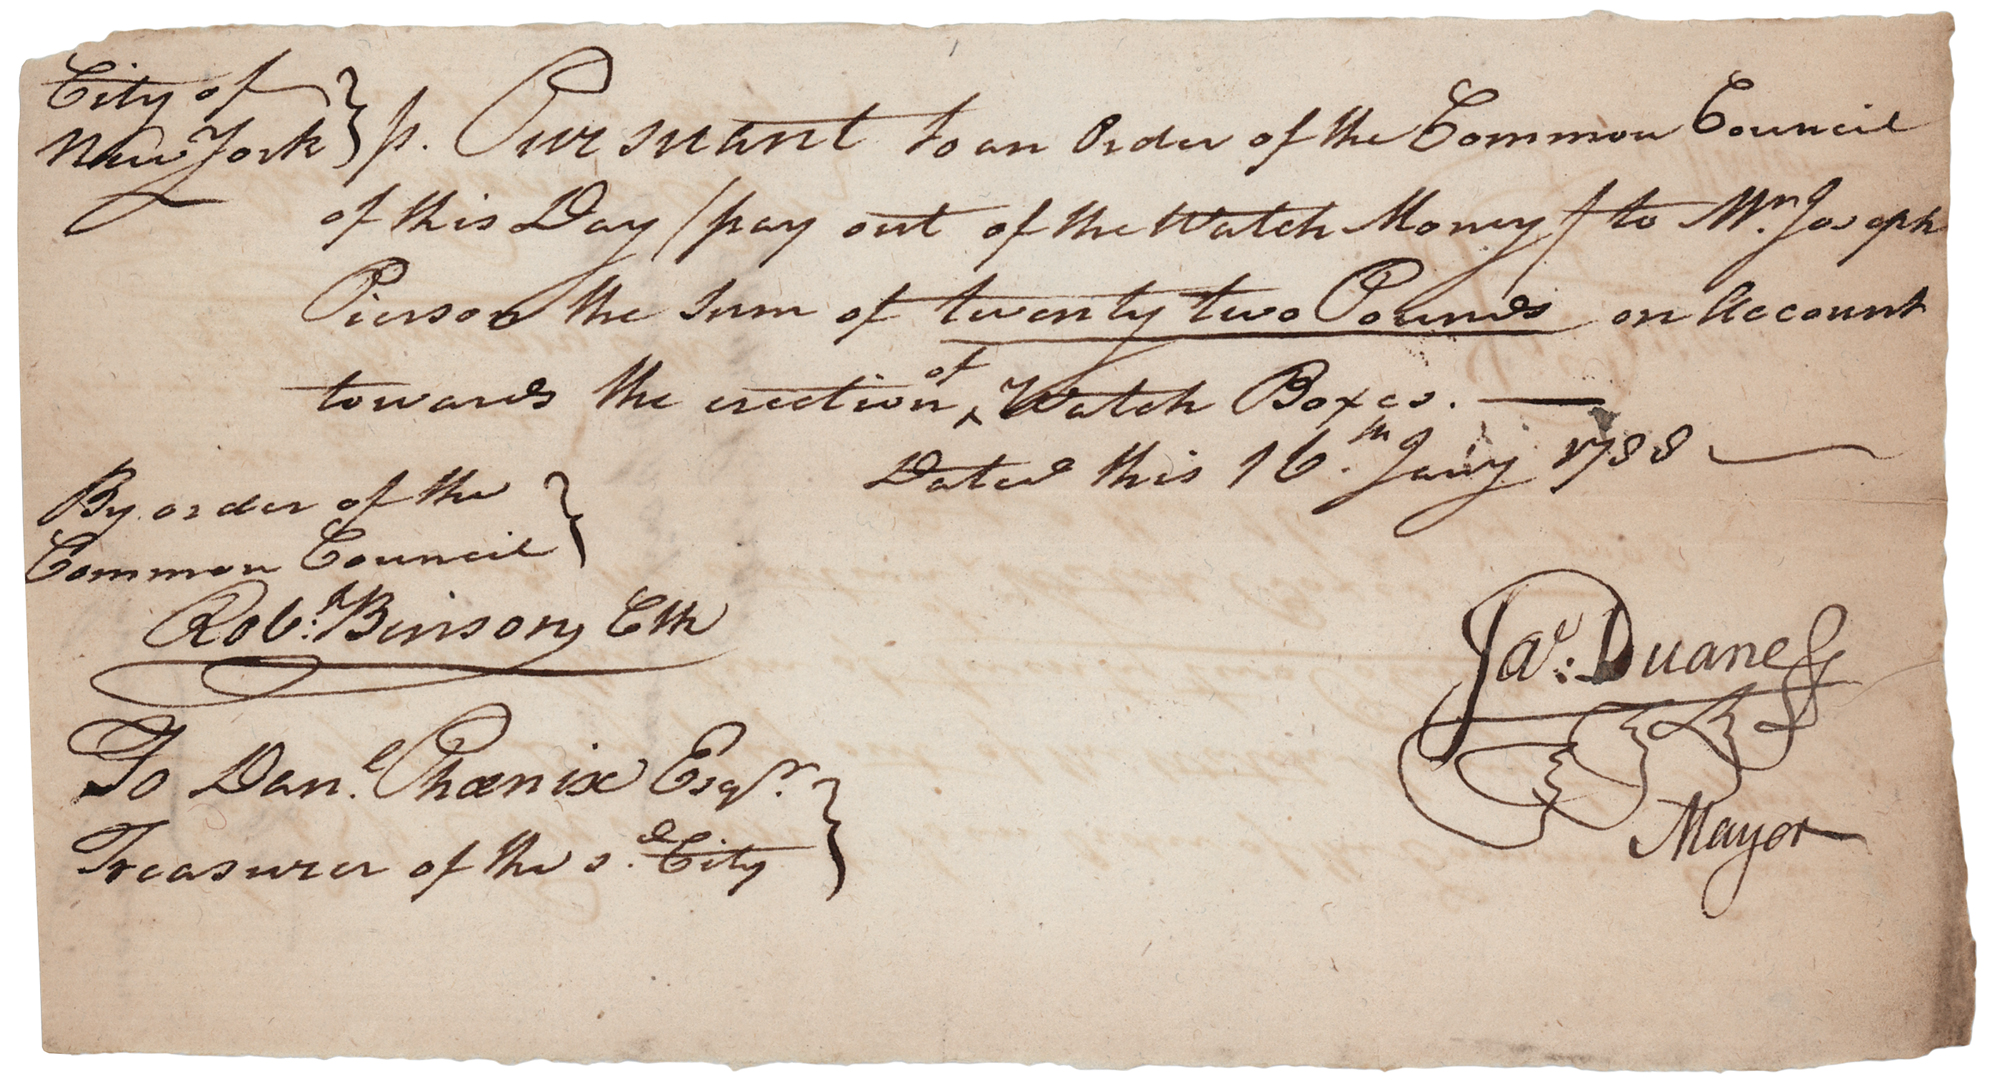 City of
New York } ss. Pursuant to an Order of the Common Council
of this Day / pay out of the Watch Money / to Mr. Joseph
Pierson the sum of twenty two Pounds on Account
towards the erection of Watch Boxes. —
Dated this 16.th Jany 1788
By order of the
Common Council }
Robt. Benson Clk
Jas: Duane
Mayor
To Danl. Phœnix Esqr.
Treasurer of the sd. City }